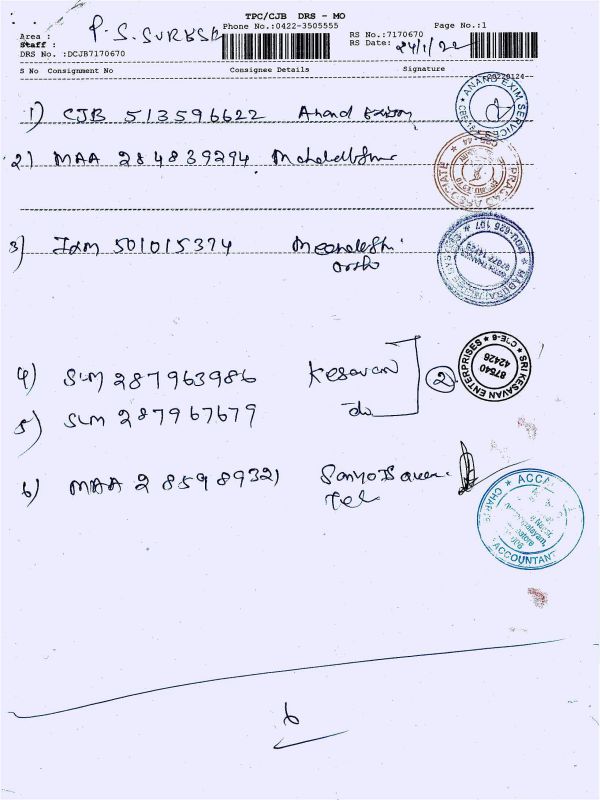 TPC/CJB DRS - MO
Phone No.:0422-3505555
Page No.:1
Area :
P.S.SURESH
RS No.:7170670
Staff :
RS Date: 24/1/22
DRS No. :DCJB7170670
S No Consignment No Consignee Details Signature
20220124
1) CJB 513596622 Anand
ANAND EXIM SERVICES
2) MAA 284839294
3) 501015374 Meenakshi
4) SLM 287963986 Kesavan
2
SRI KESAVAN ENTERPRISES * CBE-6 *
87540
42426
5) SLM 287967679 do
6) MAA 285989321
Tel
ACCOUNTANT
6